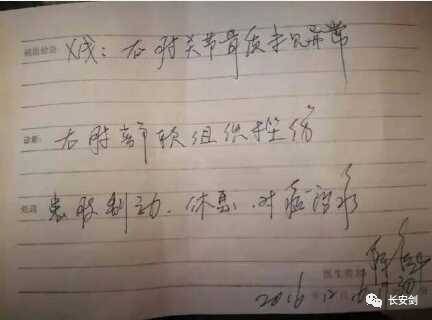 辅助检查 X线:右肘关节骨质未见异常
诊断: 右肘部软组织挫伤
处理 患肢制动、休息、对症治疗
医生签名
2016年12月6日
长安剑